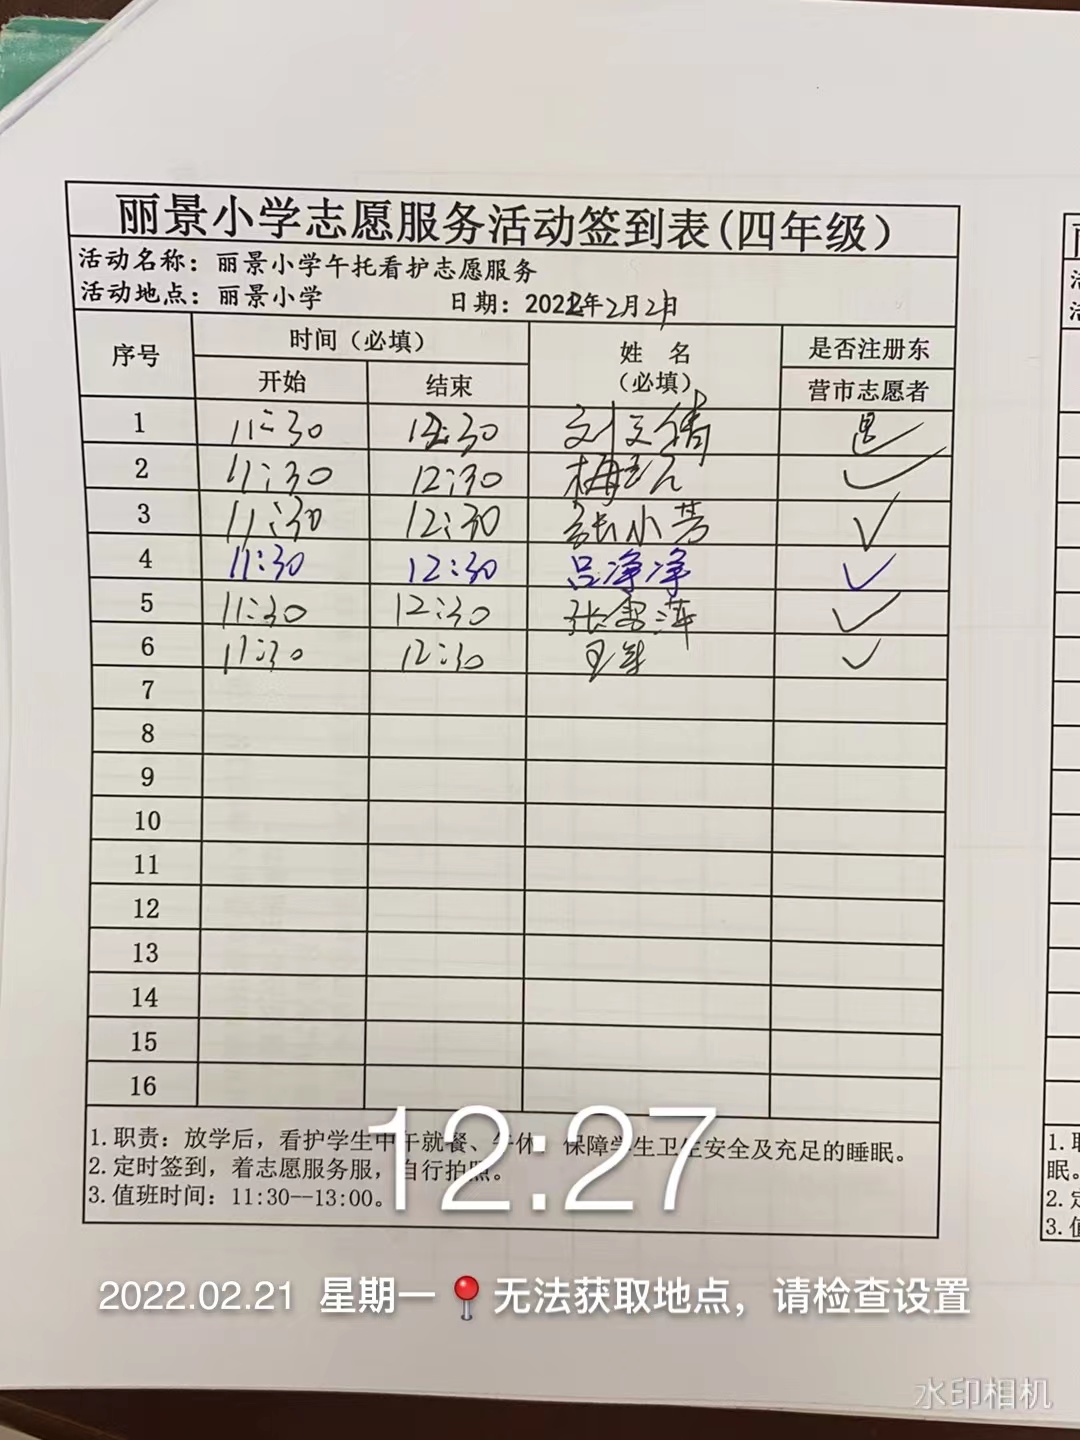 丽景小学志愿服务活动签到表(四年级)
活动名称：丽景小学午托看护志愿服务
活动地点：丽景小学 日期：2022年2月21日
序号 时间（必填） 姓 名 是否注册东
开始 结束 （必填） 营市志愿者
1 11:30 12:30 刘文倩 是✓
2 11:30 12:30 梅 ✓
3 11:30 12:30 张小芳 ✓
4 11:30 12:30 吕净净 ✓
5 11:30 12:30 张雪萍 ✓
6 11:30 12:30 王 ✓
7
8
9
10
11
12
13
14
15
16
1.职责：放学后，看护学生中午就餐、午休。保障学生卫生安全及充足的睡眠。
2.定时签到，着志愿服务服，自行拍照。
3.值班时间：11:30--13:00。
12:27
2022.02.21 星期一 📍无法获取地点，请检查设置
水印相机
1.职
眠。
2.定
3.值